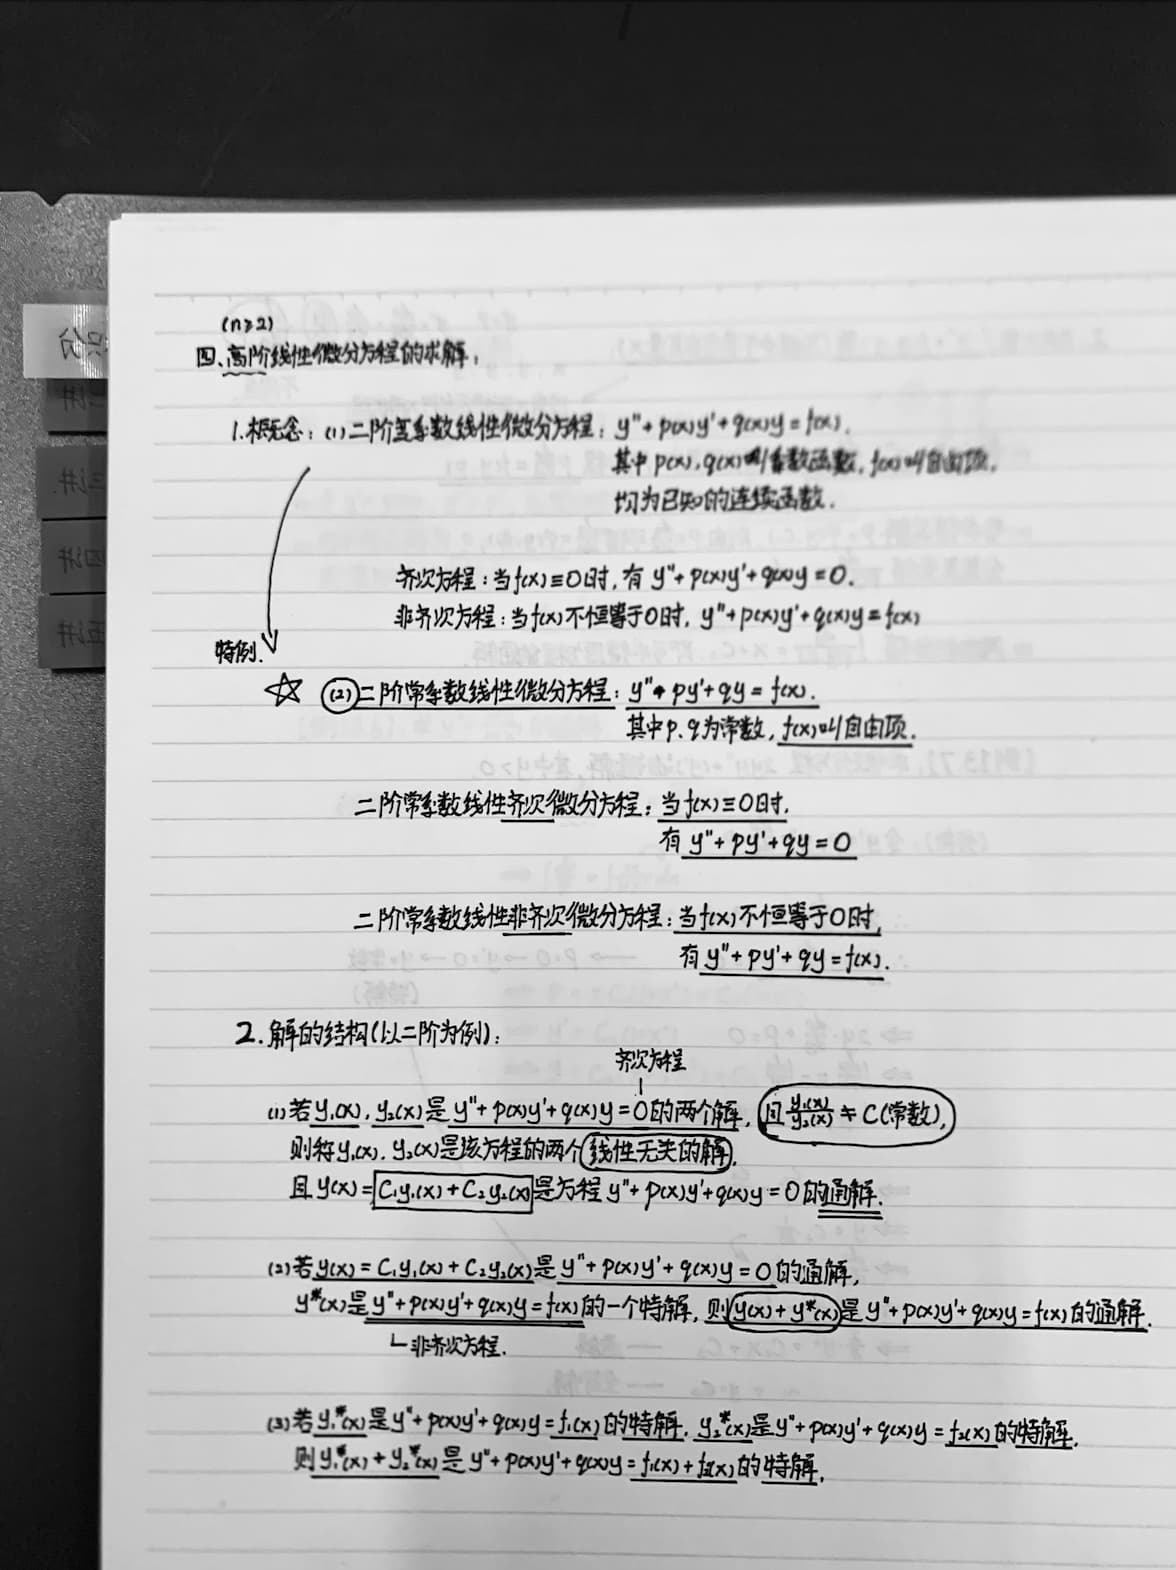 (n≥2)
四、高阶线性微分方程的求解:
1.概念: (1)二阶变系数线性微分方程: y''+p(x)y'+q(x)y=f(x).
其中p(x),q(x)叫系数函数,f(x)叫自由项,
均为已知的连续函数.
齐次方程:当f(x)≡0时,有 y''+p(x)y'+q(x)y=0.
非齐次方程:当f(x)不恒等于0时, y''+p(x)y'+q(x)y=f(x)
特例.
☆ (2)二阶常系数线性微分方程: y''+py'+qy=f(x).
其中p.q为常数, f(x)叫自由项.
二阶常系数线性齐次微分方程:当f(x)≡0时.
有 y''+py'+qy=0
二阶常系数线性非齐次微分方程:当f(x)不恒等于0时,
有 y''+py'+qy=f(x).
2.解的结构(以二阶为例):
齐次方程
(1)若y₁(x), y₂(x)是y''+p(x)y'+q(x)y=0的两个解, 且y₁(x)/y₂(x)≠C(常数),
则称y₁(x), y₂(x)是该方程的两个线性无关的解,
且y(x)=C₁y₁(x)+C₂y₂(x)是方程y''+p(x)y'+q(x)y=0的通解.
(2)若y(x)=C₁y₁(x)+C₂y₂(x)是y''+p(x)y'+q(x)y=0的通解,
y*(x)是y''+p(x)y'+q(x)y=f(x)的一个特解, 则y(x)+y*(x)是y''+p(x)y'+q(x)y=f(x)的通解.
非齐次方程.
(3)若y₁*(x)是y''+p(x)y'+q(x)y=f₁(x)的特解, y₂*(x)是y''+p(x)y'+q(x)y=f₂(x)的特解,
则y₁*(x)+y₂*(x)是y''+p(x)y'+q(x)y=f₁(x)+f₂(x)的特解.